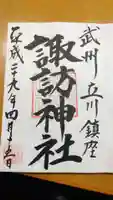 武州立川鎮座
諏訪神社
平成二十九年四月十三日